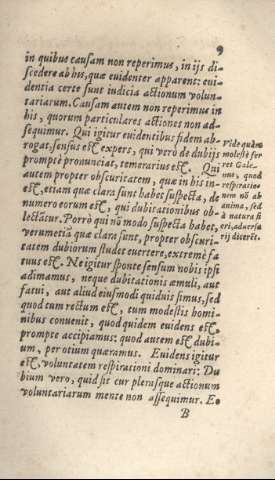 9
in quibus causam non reperimus, in ijs di-
scedere ab his, quæ euidenter apparent: eui-
dentia certe sunt iudicia actionum volun-
tariarum. Causam autem non reperimus in
his, quorum particulares actiones non ad-
sequimur. Qui igitur euidentibus fidem ab-
rogat, sensus est expers, qui verò de dubijs
promptè pronunciat, temerarius est. Qui
autem propter obscuritatem, quæ in his in-
est, etiam quæ clara sunt habet suspecta, de
numero eorum est, qui dubitationibus ob-
lectātur. Porrò qui nō modo suspecta habet,
verumetiā quæ clara sunt, propter obscuri-
tatem dubiorum studet euertere, extremè fa
tuus est. Ne igitur sponte sensum nobis ipsi
adimamus, neque dubitationis æmuli, aut
fatui, aut aliud eiusmodi quiduis simus, sed
quod cum rectum est, tum modestis homi-
nibus conuenit, quod quidem euidens est,
prompte accipiamus: quod autem est dubi-
um, per otium quæramus. Euidens igitur
est, voluntatem respirationi dominari: Du
bium vero, quid sit cur plerasque actionum
voluntariarum mente non assequimur. Eo
B
Vide quàm
molestè fer
ret Gale-
nus, quod
respiratio-
nem nō ab
anima, sed
à natura fi
eri, aduersa
rij dicerēt.